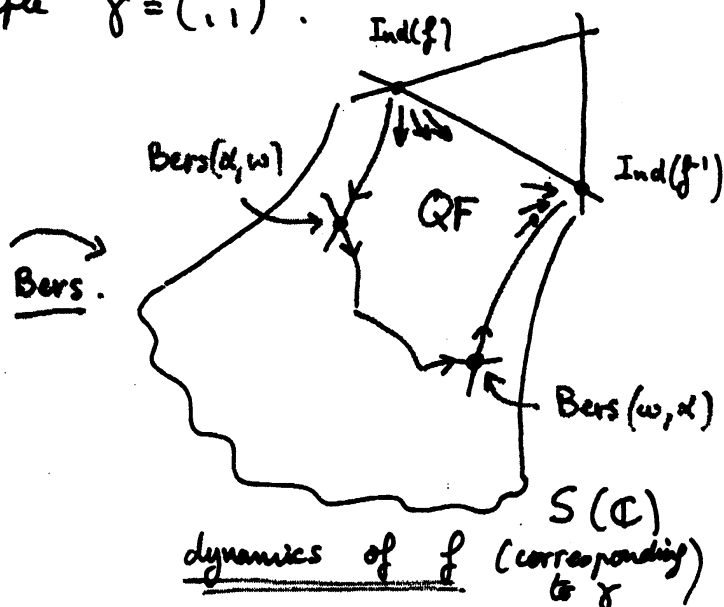 ple γ = (1,1).
Ind(f)
Bers(α,ω)
Ind(f⁻¹)
QF
Bers.
Bers(ω,α)
S(ℂ)
dynamics of f (corresponding
to γ)